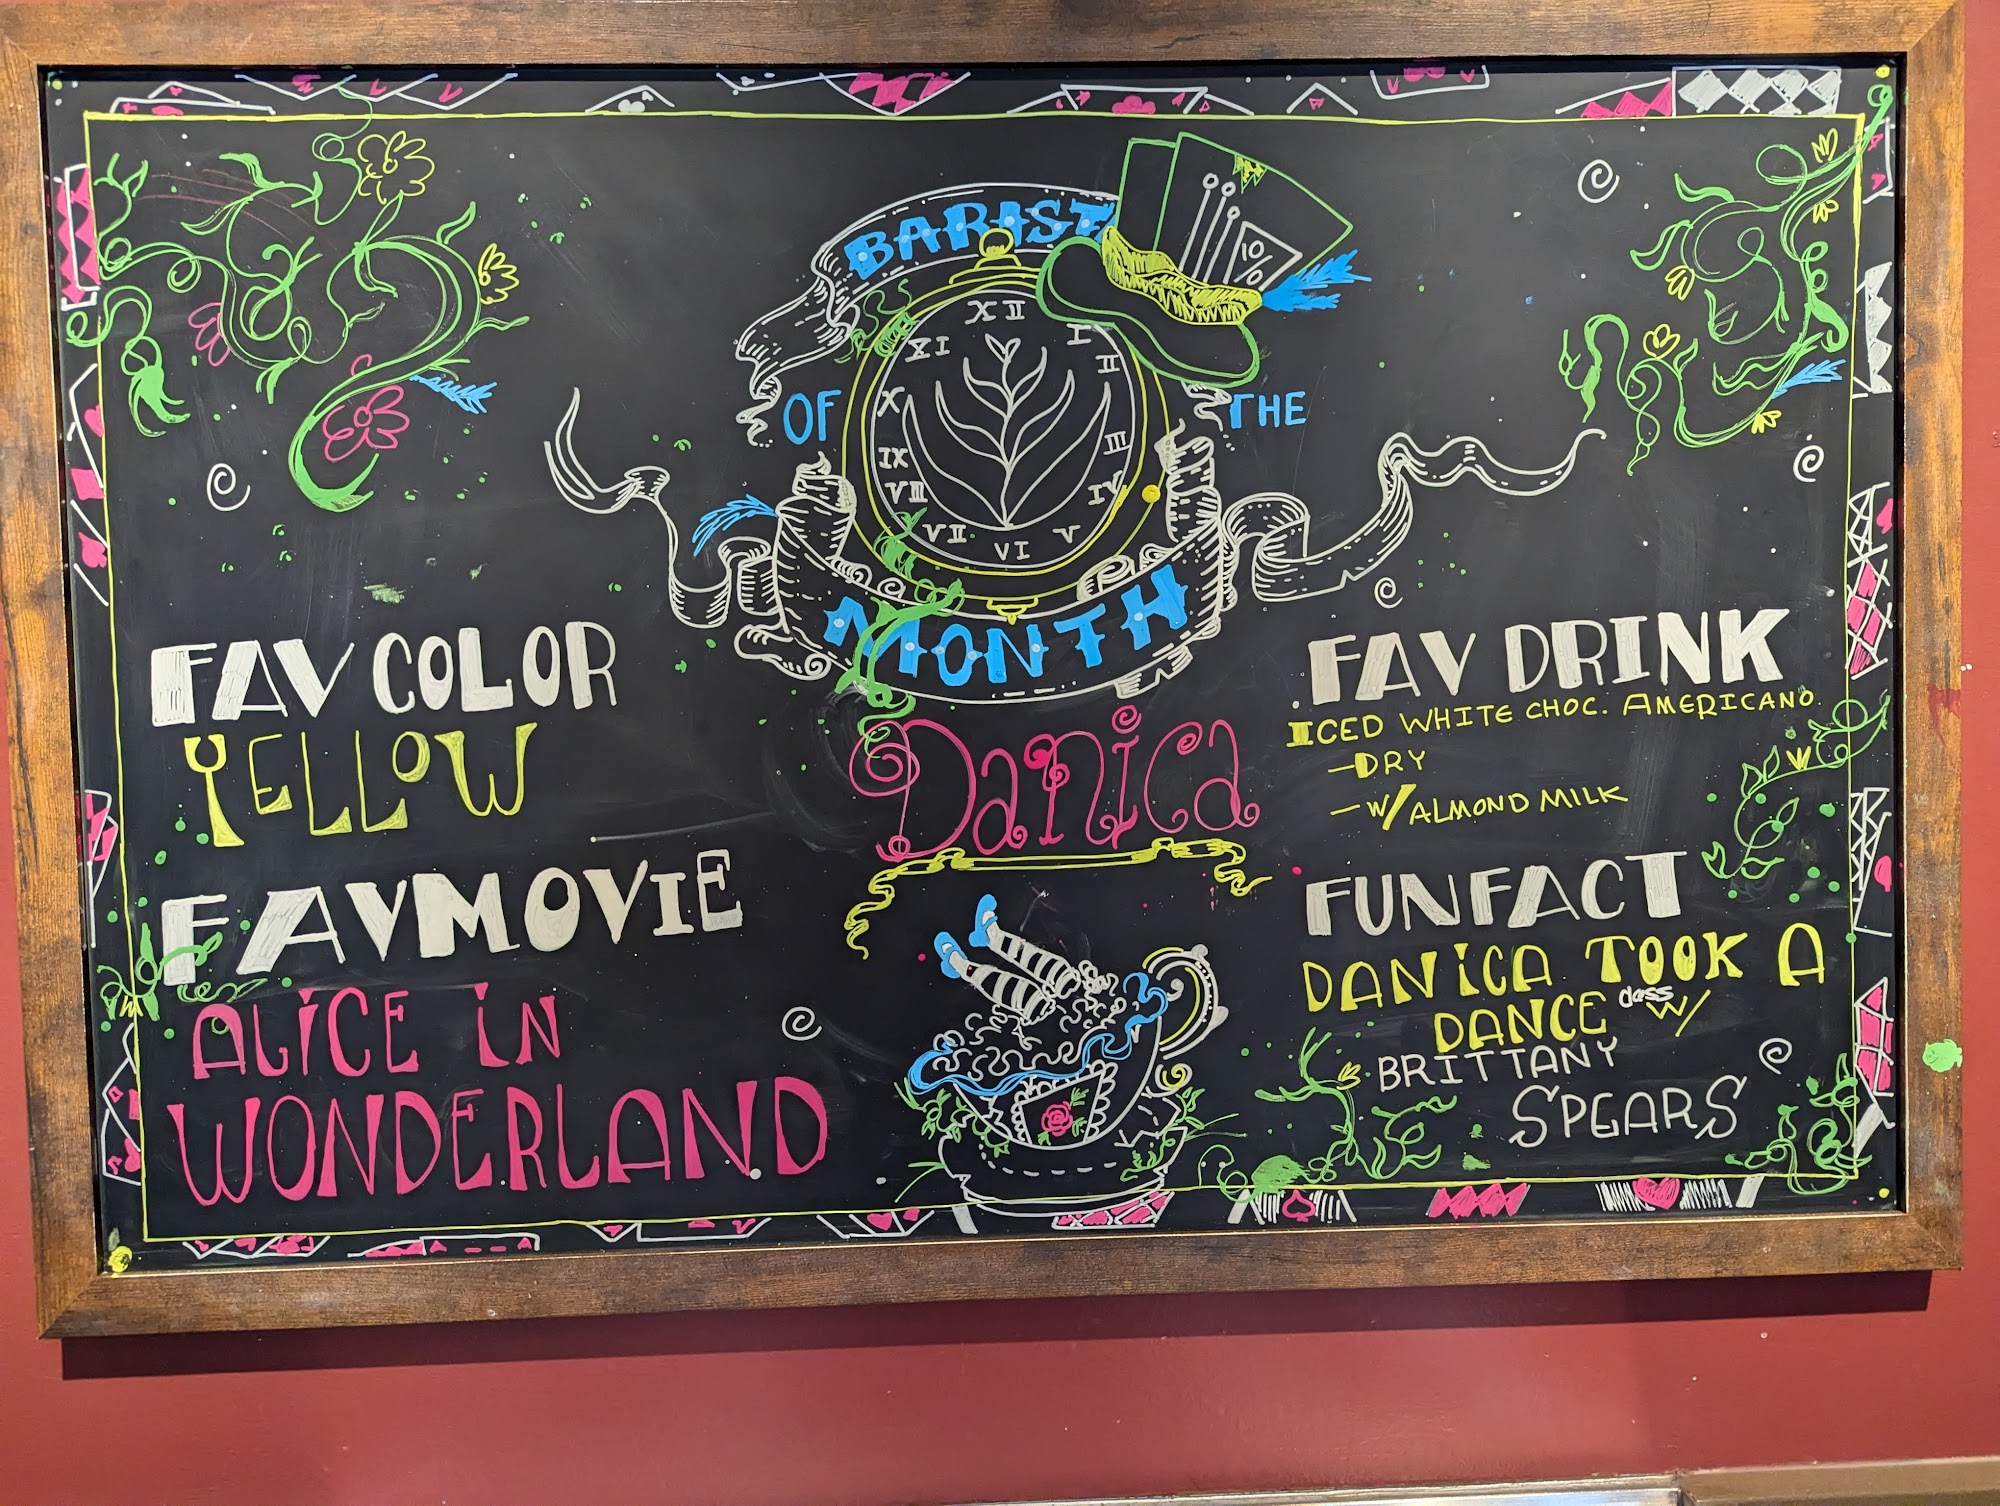 BARIST
OF THE
10/6
XII
I
II
III
IV
V
VI
VII
VIII
IX
X
XI
MONTH
Danica
FAV COLOR
YELLOW
FAV MOVIE
ALICE IN
WONDERLAND
FAV DRINK
ICED WHITE CHOC. AMERICANO.
-DRY
-W/ALMOND MILK
FUN FACT
DANICA TOOK A
DANCE class W/
BRITTANY
SPEARS